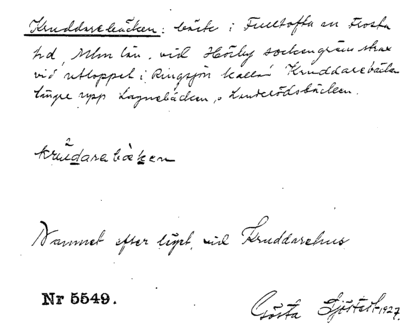 Kruddarebäcken: bäck i Fulltofta sn Frosta
hd, Mlm län, vid Hörby sockengräns strax
vid utloppet i Ringsjön kallas Kruddarebäcken
längre upp Lagnebäcken, o Linderödsbäcken.
krùdarebä̀ken
Namnet efter läget vid Kruddarehus
Nr 5549.
Gösta Sjöstedt 1927.